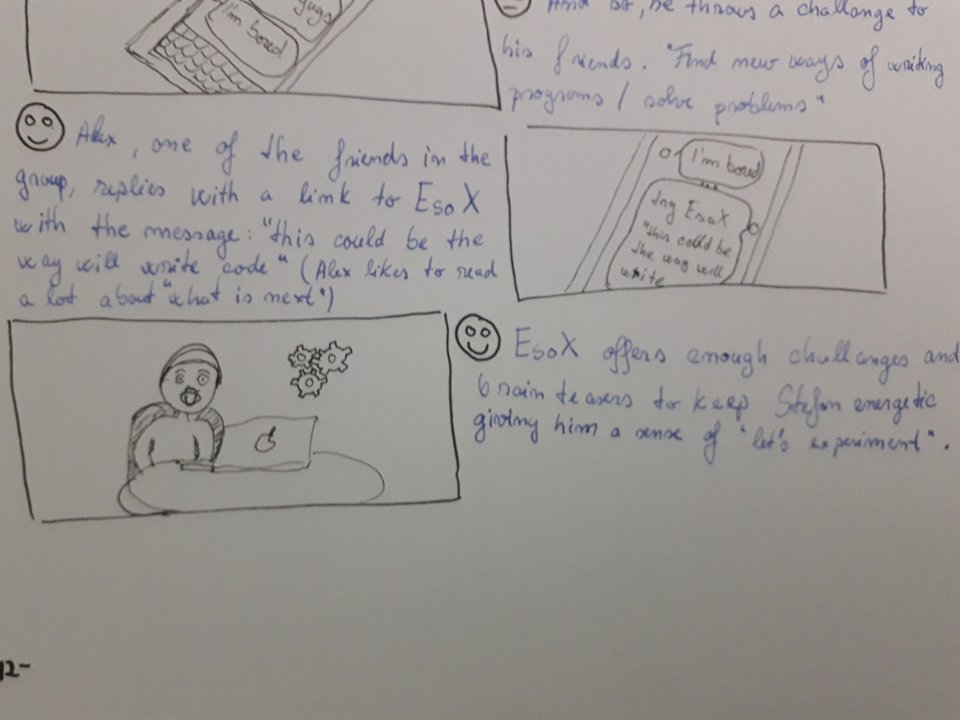 guys
I'm bored
And so, he throws a challange to
his friends. "Find new ways of writing
programs / solve problems"
Alex, one of the friends in the
group, replies with a link to EsoX
with the message: "this could be the
way will write code" (Alex likes to read
a lot about "what is next")
I'm bored
try EsoX
"this could be
the way will
write
EsoX offers enough challanges and
brain teasers to keep Stefan energetic
giving him a sense of "let's experiment".
12-